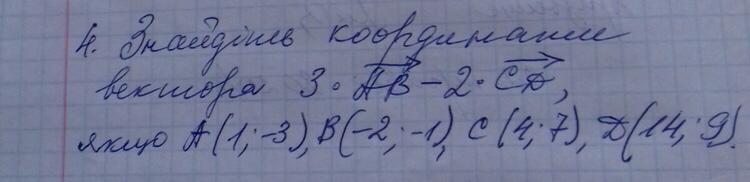 4. Знайдіть координати
вектора 3 · AB – 2 · CD,
якщо A(1; -3), B(-2; -1), C(4; 7), D(14; 9).